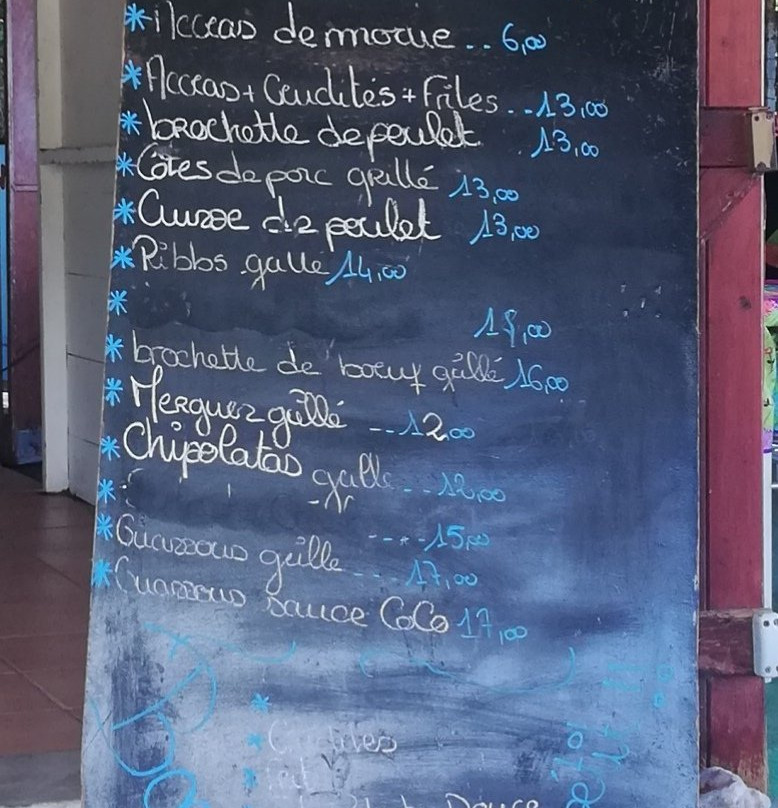 *Accras de morue .. 6,00
*Accras + Crudités + Frites .. 13,00
*brochette de poulet 13,00
*Côtes de porc grillé 13,00
*Cuisse de poulet 13,00
*Ribbs grillé 14,00
*
*brochette de boeuf grillé 16,00
*Merguez grillé -- 12,00
*Chipolatas grillé -- 12,00
* ---- 15,00
*Ouassous grillé --- 17,00
*Ouassous sauce CoCo 17,00
*
*
*
Douce